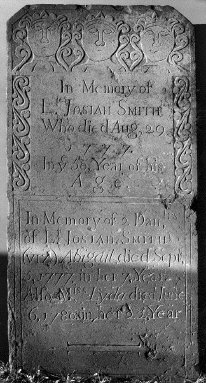 In Memory of
Lt JOSIAH SMITH
Who died Aug. 29
1777
In ye Year of his
Age
In Memory of 2 Daurs
of Lt JOSIAH SMITH
(viz) Abigail died Sept
1777 in her Year
Also Mrs Lydia died June
6, 1780 in her Year